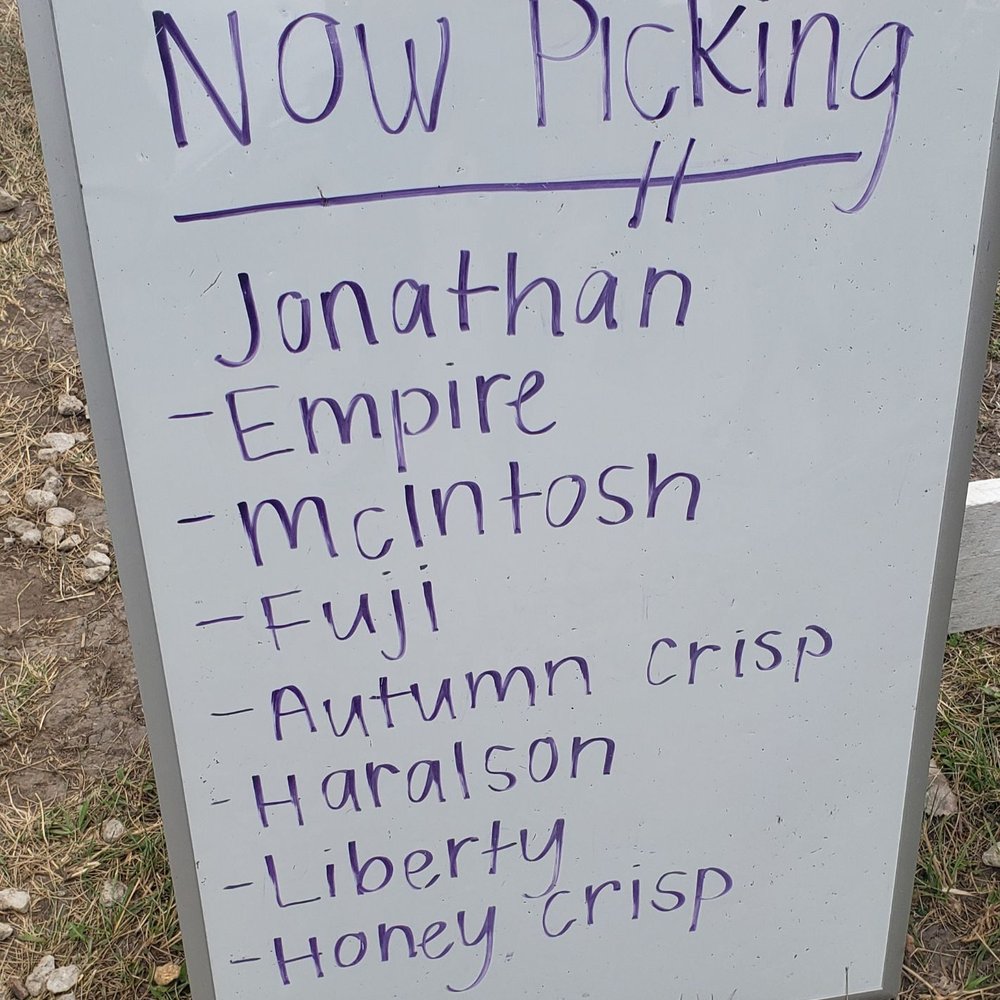 Now Picking
Jonathan
- Empire
- McIntosh
- Fuji
- Autumn crisp
- Haralson
- Liberty
- Honey crisp